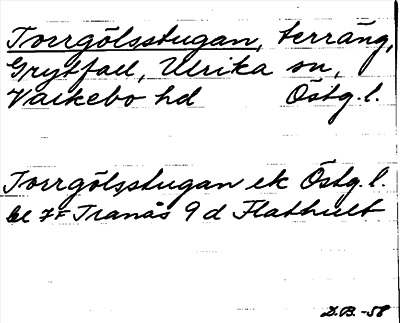 Torrgölsstugan, terräng,
Grytfall, Ulrika sn,
Valkebo hd Östg. l.
Torrgölsstugan ek Östg. l.
bl 7F Tranås 9 d Flathult
D.B. -58